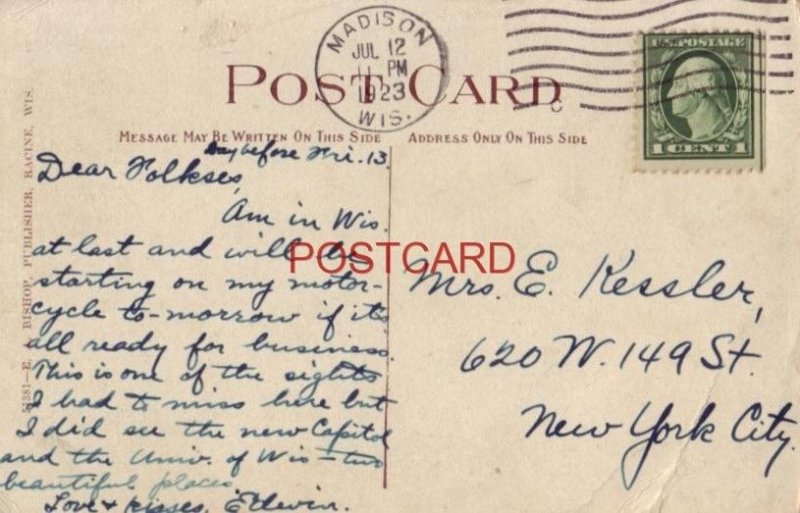 MADISON
JUL 12
11 PM
1923
WIS.
U.S. POSTAGE
1 CENT 1
POST CARD
MESSAGE MAY BE WRITTEN ON THIS SIDE
ADDRESS ONLY ON THIS SIDE
BISHOP, PUBLISHER, RACINE, WIS.
Day before Fri. 13.
Dear Folkses,
Am in Wis.
at last and will be
starting on my motor-
cycle to-morrow if it's
all ready for business.
This is one of the sights
I had to miss here but
I did see the new Capitol
and the Univ. of Wis — two
beautiful places
Love & kisses, Edwin.
POSTCARD
Mrs. E. Kessler,
620 W. 149 St.
New York City.